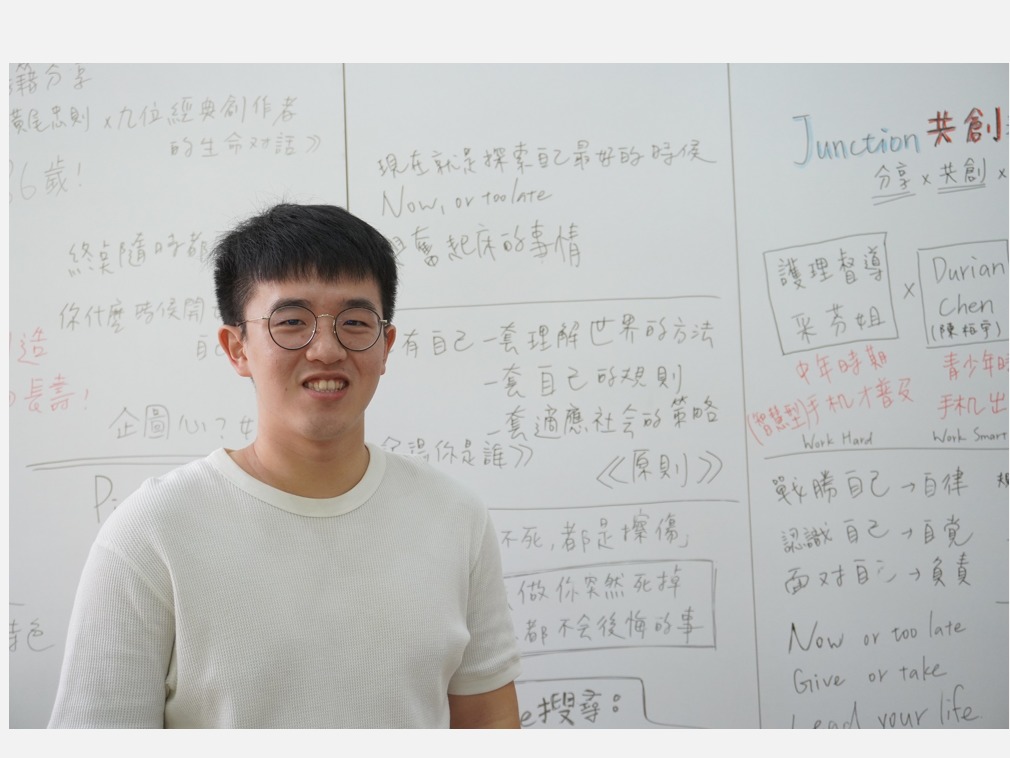 籍分享
橫尾忠則 x 九位經典創作者
的生命对話》
36歲!
終臬隨時都
你什麼時候開
自己
造
長壽!
企圖心?
現在就是探索自己最好的時候
Now, or too late
奮起床的事情
有自己一套理解世界的方法
一套自己的規則
一套適應社会的策略
你是誰》
《原則》
不死,都是擦傷」
做你突然死掉
都不会後悔的事
e搜尋:
Junction 共創
分享 x 共創 x
護理督導
采芬姐
x
Durian
Chen
(陳栢宇)
中年時期
(智慧型)手机才普及
Work Hard
青少年時
手机出
Work Smart
戰勝自己→自律
認識自己→自覚
面对自己→負責
Now or too late
Give or take
Lead your life.